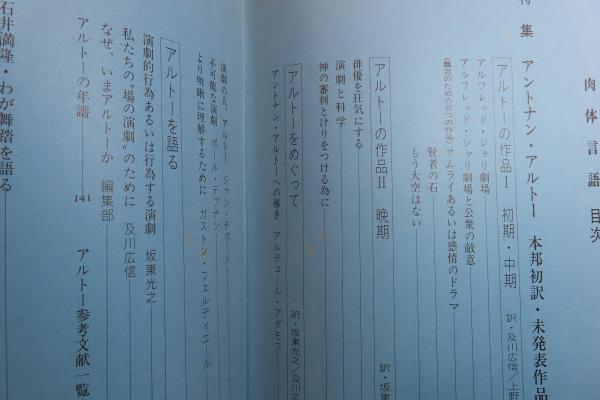 肉体言語 目次
特集 アントナン・アルトー 本邦初訳・未発表作品
アルトーの作品Ⅰ 初期・中期 訳・及川広信/上野
アルフレッド・ジャリ劇場
アルフレッド・ジャリ劇場と公衆の敵意
《舞台のための三つの作品》サムライあるいは感情のドラマ
賢者の石
もう大空はない
アルトーの作品Ⅱ 晩期 訳・坂
俳優を狂気にする
演劇と科学
神の審判とけりをつける為に
アルトーをめぐって 訳・坂東光之/及川広
アントナン・アルトーへの導き アルチュール・アダモフ
演劇の人、アルトー ジャン・チボード
不可能な演劇 ポール・テブナン
より明晰に理解するために ガストン・フェルディエール
アルトーを語る
演劇的行為あるいは行為する演劇 坂東光之
私たちの“場の演劇”のために 及川広信
なぜ、いまアルトーか 編集部
アルトーの年譜 141 アルトー参考文献一覧
石井満隆・わが舞踏を語る